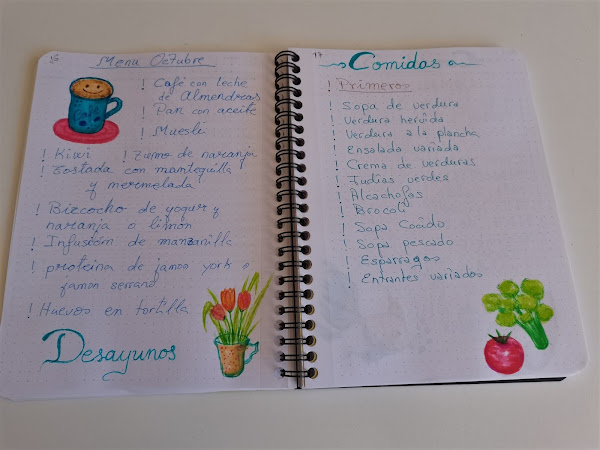 16
Menu Octubre
! Café con leche
de Almendras
! Pan con aceite
! Muesli
! Kiwi ! Zumo de naranja
! Tostada con mantequilla
y mermelada
! Bizcocho de yogur y
naranja o limón
! Infusión de manzanilla
! proteina de jamon york o
jamon serrano
! Huevos en tortilla
Desayunos
17
Comidas
! Primeros
! Sopa de verdura
! Verdura hervida
! Verdura a la plancha
! Ensalada variada
! Crema de verduras
! Judias verdes
! Alcachofas
! Brocoli
! Sopa Cocido
! Sopa pescado
! Esparragos
! Entrantes variados